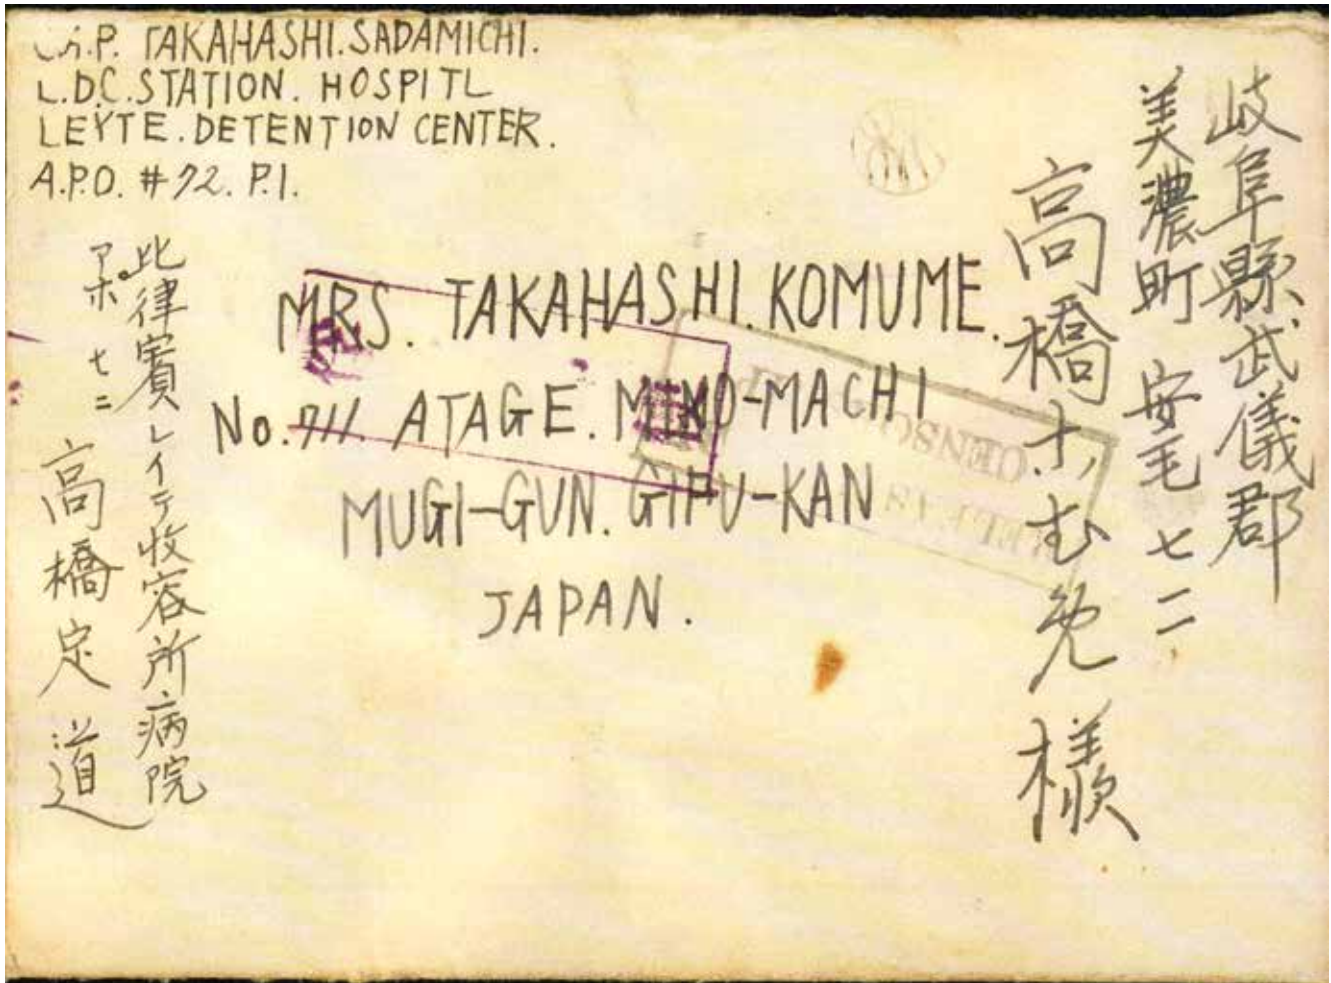 TAKAHASHI.SADAMICHI.
L.D.C.STATION. HOSPITL
LEYTE.DETENTION CENTER.
A.P.O. #72. P.I.
MRS. TAKAHASHI.KOMUME.
No.711. ATAGE. MINO-MACHI
MUGI-GUN. GIFU-KAN
JAPAN.
岐阜縣武儀郡
美濃町 安毛 七一一
高橋こむめ様
比律賓レイテ收容所病院
アポ 七二
高橋定道
CENSO